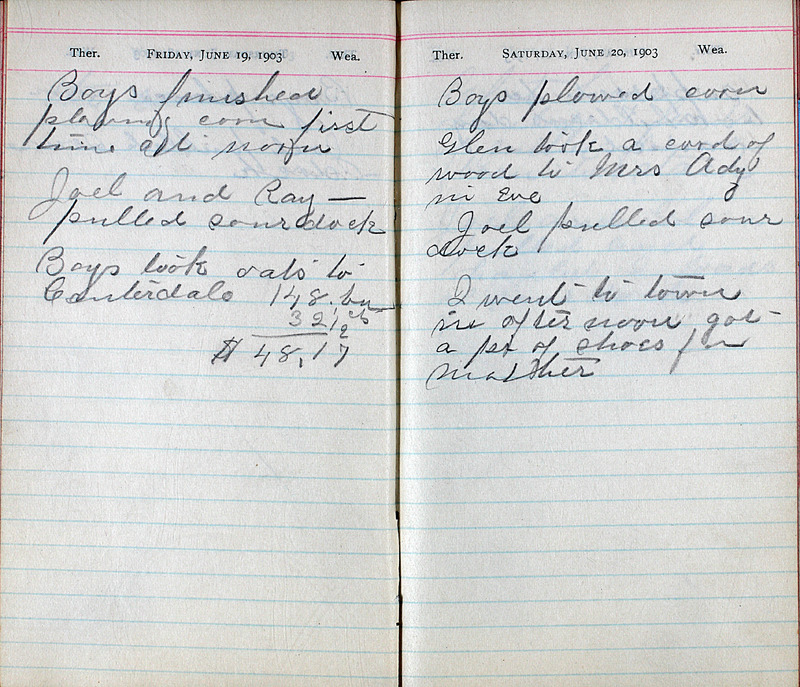 Ther. FRIDAY, JUNE 19, 1903 Wea.
Boys finished
plowing corn first
time at noon
Joel and Ray —
pulled sour dock
Boys took oats to
Centerdale 148. bu
32 1/2 cts
$ 48.17
Ther. SATURDAY, JUNE 20, 1903 Wea.
Boys plowed corn
Glen took a cord of
wood to Mrs Ady
in Eve
Joel pulled sour
dock
I went to town
in after noon got
a pr of shoes for
mother